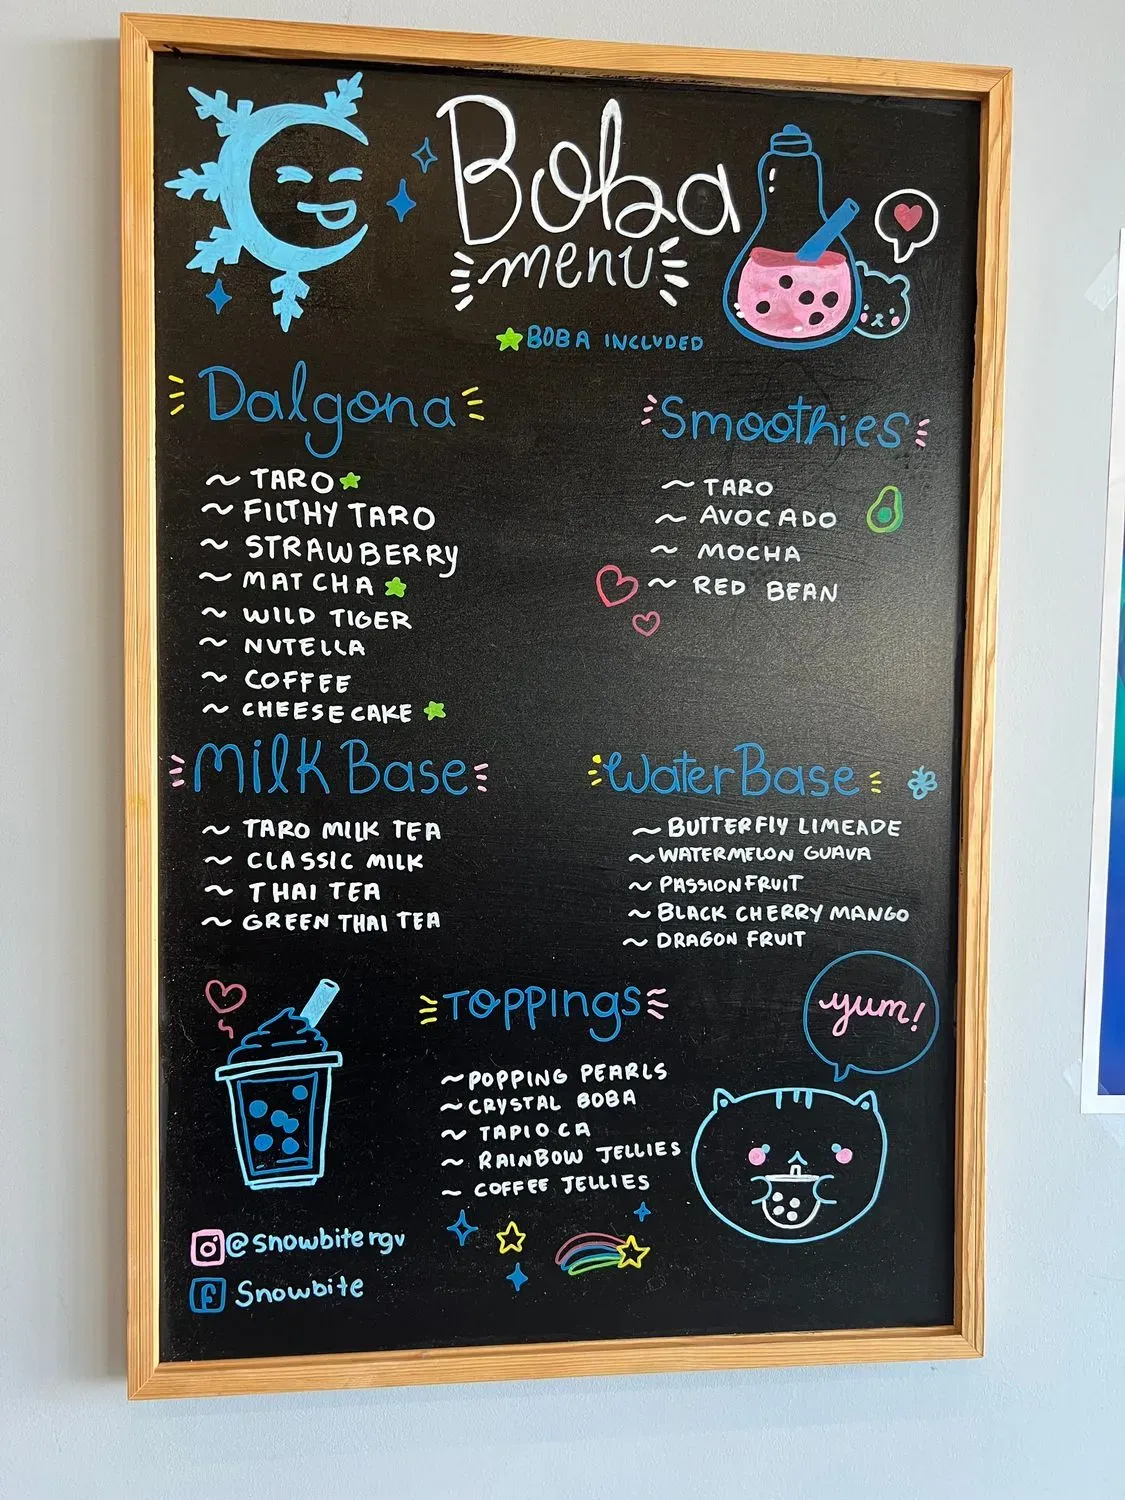 Boba
menu
BOBA INCLUDED
Dalgona
~ TARO
~ FILTHY TARO
~ STRAWBERRY
~ MATCHA
~ WILD TIGER
~ NUTELLA
~ COFFEE
~ CHEESECAKE
Smoothies
~ TARO
~ AVOCADO
~ MOCHA
~ RED BEAN
Milk Base
~ TARO MILK TEA
~ CLASSIC MILK
~ THAI TEA
~ GREEN THAI TEA
Water Base
~ BUTTERFLY LIMEADE
~ WATERMELON GUAVA
~ PASSIONFRUIT
~ BLACK CHERRY MANGO
~ DRAGON FRUIT
Toppings
~ POPPING PEARLS
~ CRYSTAL BOBA
~ TAPIOCA
~ RAINBOW JELLIES
~ COFFEE JELLIES
yum!
@snowbitergv
f Snowbite